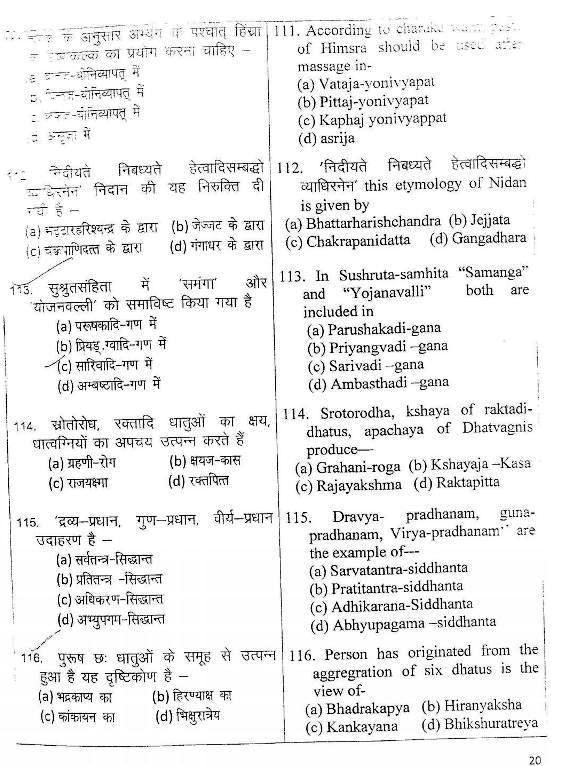 के अनुसार अभ्यंग के पश्चात् हिंस्रा
का प्रयोग करना चाहिए –
योनिव्यापत् में
योनिव्यापत् में
योनिव्यापत् में
में
निदीयते निबध्यते हेत्वादिसम्बद्धो
निदान की यह निरुक्ति दी
है –
(a) भट्टारहरिश्चन्द्र के द्वारा (b) जेज्जट के द्वारा
(c) चक्रपाणिदत्त के द्वारा (d) गंगाधर के द्वारा
113. सुश्रुतसंहिता में 'समंगा' और
'योजनवल्ली' को समाविष्ट किया गया है
(a) परूषकादि-गण में
(b) प्रियङ्.ग्वादि-गण में
(c) सारिवादि-गण में
(d) अम्बष्टादि-गण में
114. स्रोतोरोध, रक्तादि धातुओं का क्षय,
धात्वग्नियों का अपचय उत्पन्न करते हैं
(a) ग्रहणी-रोग (b) क्षयज-कास
(c) राजयक्ष्मा (d) रक्तपित्त
115. 'द्रव्य-प्रधान, गुण-प्रधान, वीर्य-प्रधान
उदाहरण है –
(a) सर्वतन्त्र-सिद्धान्त
(b) प्रतितन्त्र -सिद्धान्त
(c) अधिकरण-सिद्धान्त
(d) अभ्युपगम-सिद्धान्त
116. पुरूष छः धातुओं के समूह से उत्पन्न
हुआ है यह दृष्टिकोण है –
(a) भद्रकाप्य का (b) हिरण्याक्ष का
(c) कांकायन का (d) भिक्षुरात्रेय
111. According to charake
of Himsra should be used after
massage in-
(a) Vataja-yonivyapat
(b) Pittaj-yonivyapat
(c) Kaphaj yonivyappat
(d) asrija
112. 'निदीयते निबध्यते हेत्वादिसम्बद्धो
व्याधिरनेन' this etymology of Nidan
is given by
(a) Bhattarharishchandra (b) Jejjata
(c) Chakrapanidatta (d) Gangadhara
113. In Sushruta-samhita "Samanga"
and "Yojanavalli" both are
included in
(a) Parushakadi-gana
(b) Priyangvadi –gana
(c) Sarivadi –gana
(d) Ambasthadi –gana
114. Srotorodha, kshaya of raktadi-
dhatus, apachaya of Dhatvagnis
produce—
(a) Grahani-roga (b) Kshayaja –Kasa
(c) Rajayakshma (d) Raktapitta
115. Dravya- pradhanam, guna-
pradhanam, Virya-pradhanam'' are
the example of---
(a) Sarvatantra-siddhanta
(b) Pratitantra-siddhanta
(c) Adhikarana-Siddhanta
(d) Abhyupagama –siddhanta
116. Person has originated from the
aggregration of six dhatus is the
view of-
(a) Bhadrakapya (b) Hiranyaksha
(c) Kankayana (d) Bhikshuratreya
20